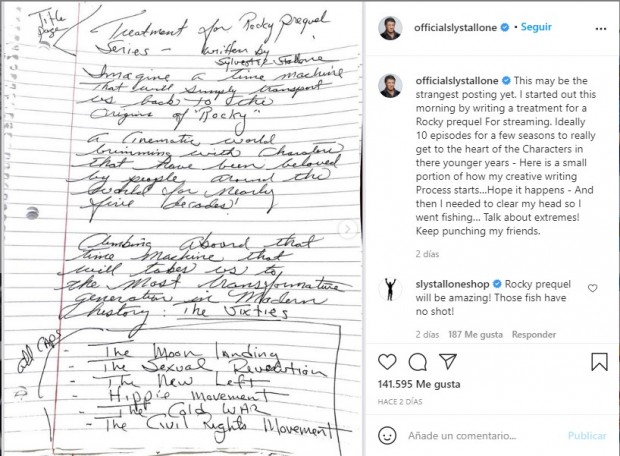 Title
page
Treatment for Rocky Prequel
Series - written by
Sylvester Stallone
Imagine a time machine
that will simply transport
us back to the
origins of "Rocky"
a Cinematic world
brimming with Characters
that have been beloved
by people around the
world for nearly
five decades!
Climbing Aboard that
time Machine that
will takes us to
the Most transformative
generation in Modern
history: The Sixties
add CAPS
- The Moon Landing
- The Sexual Revolution
- The New Left
- Hippie Movement
- The Cold WAR
- The Civil Rights Movement
officialslystallone • Seguir
officialslystallone This may be the
strangest posting yet. I started out this
morning by writing a treatment for a
Rocky prequel For streaming. Ideally
10 episodes for a few seasons to really
get to the heart of the Characters in
there younger years - Here is a small
portion of how my creative writing
Process starts...Hope it happens - And
then I needed to clear my head so I
went fishing... Talk about extremes!
Keep punching my friends.
2 días
slystalloneshop Rocky prequel
will be amazing! Those fish have
no shot!
2 días 187 Me gusta Responder
141.595 Me gusta
HACE 2 DÍAS
Añade un comentario...
Publicar